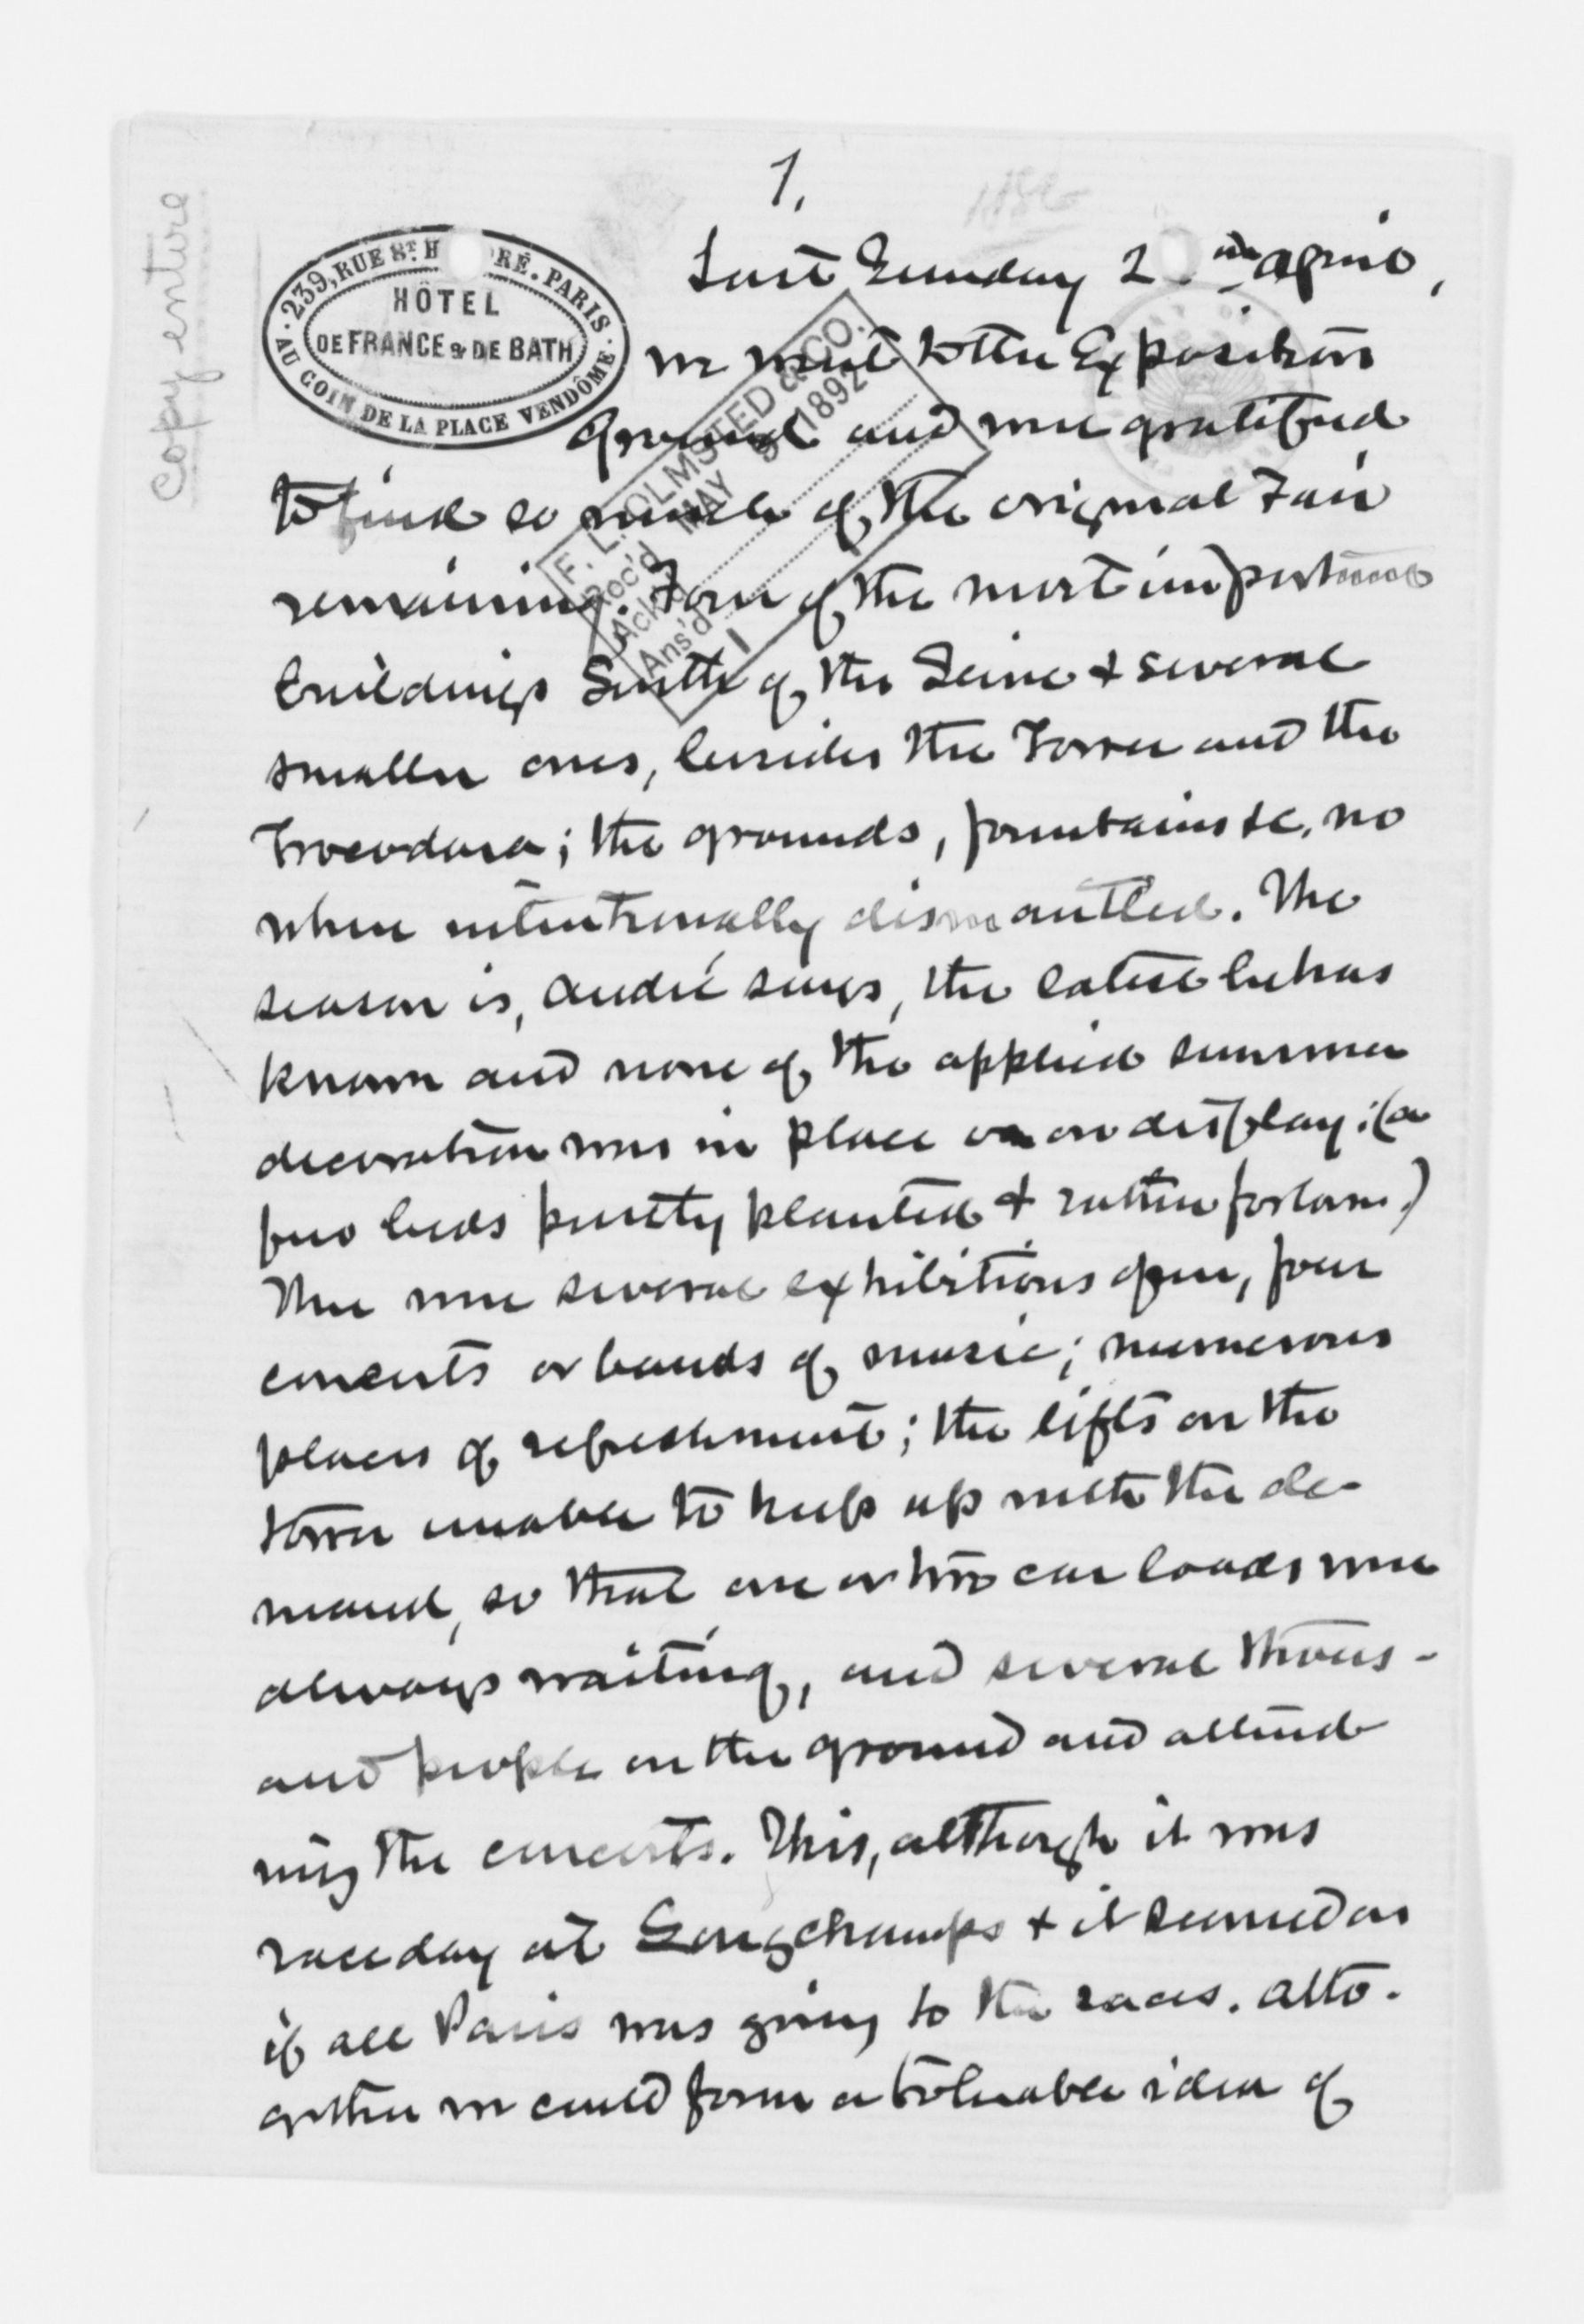 1.
Last Sunday 2 th April,
239, RUE ST. H RÉ. PARIS.
HÔTEL
DE FRANCE & DE BATH
AU COIN DE LA PLACE VENDÔME
Copy entire
we went to the Exposition
Ground and were gratified
to find so much of the original Fair
remaining. Four of the most important
buildings South of the Seine & several
smaller ones, besides the Tower and the
Trocodara; the grounds, fountains &c. no
where intentionally dismantled. The
season is, André says, the latest he has
known and none of the applied summer
decoration was in place or on display; (a
few beds partly planted & rather forlorn.)
There were several exhibitions open, four
concerts or bands of music; numerous
places of refreshment; the lifts on the
tower unable to keep up with the de-
mand, so that one or two car loads were
always waiting, and several thous-
and people on the ground and attend
ing the concerts. This, although it was
race day at Longchamps & it seemed as
if all Paris was going to the races. Alto-
gether we could form a tolerable idea of
F. L. OLMSTED & CO.
Rec'd MAY 1892
Ack'd
Ans'd